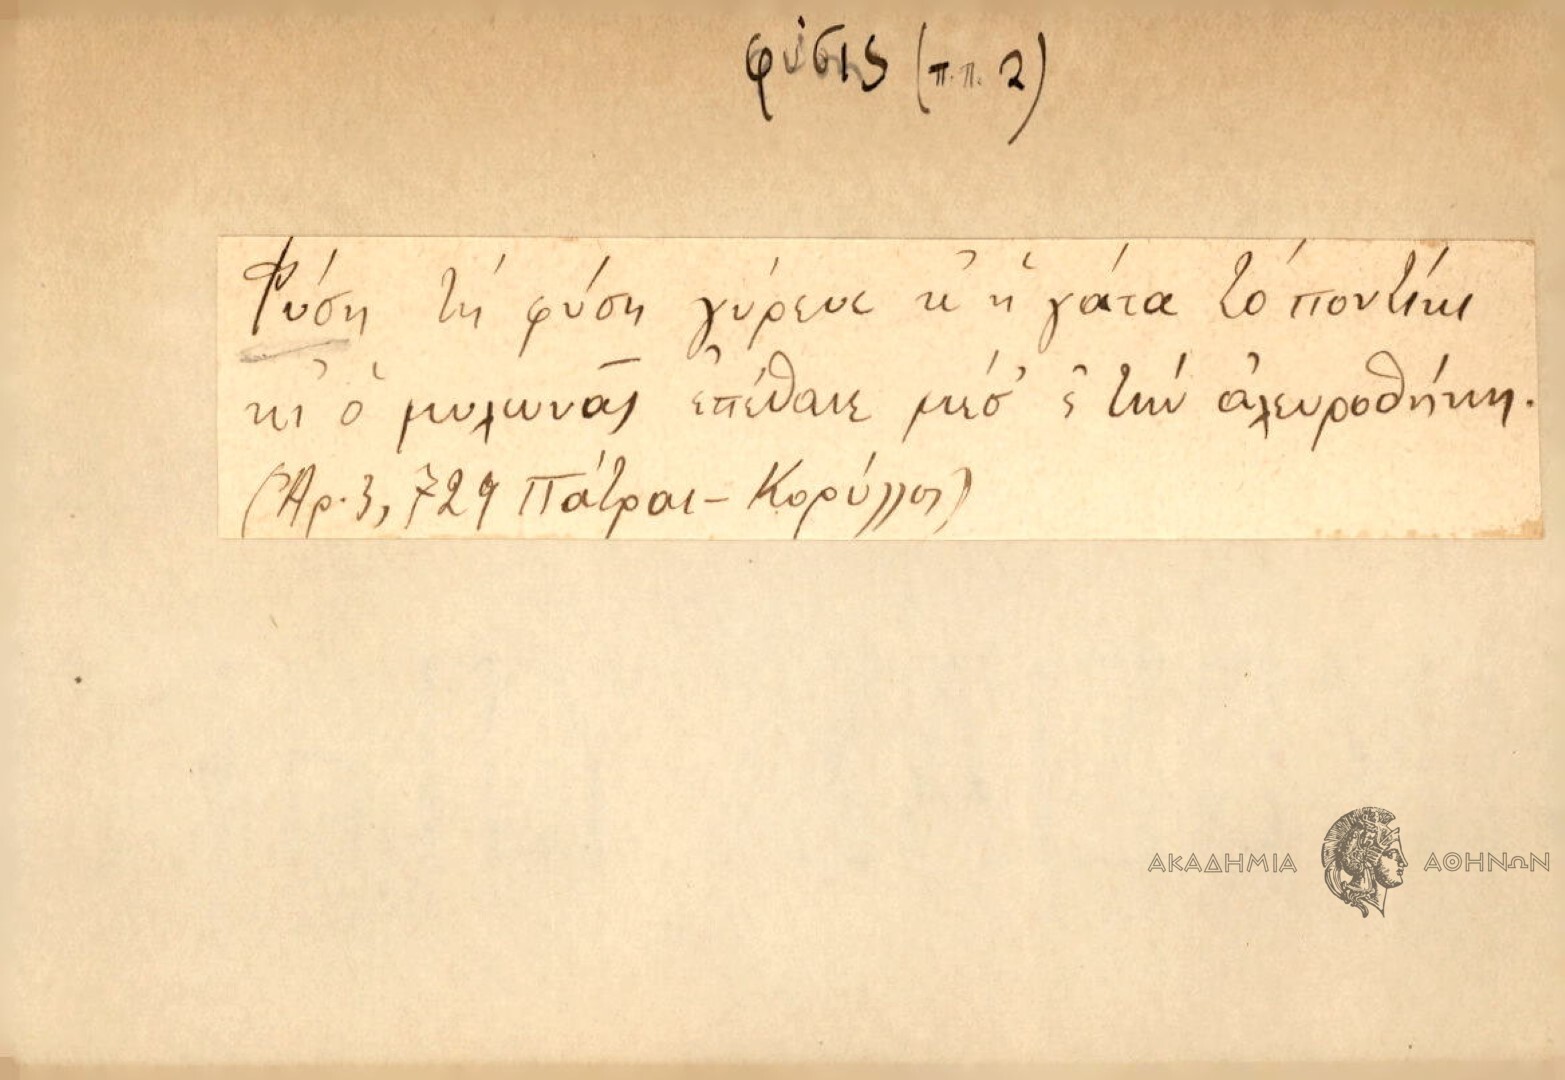 φύσις (π.π. 2)
Φύση τή φύση γύρευε κ' ἡ γάτα τό ποντίκι
κι' ὁ μυλωνᾶς ἐπέθανε μέσ' ς τήν ἀλευροθήκη.
(Ἀρ. 3, 729 Πάτραι - Κορύλλος)
ΑΚΑΔΗΜΙΑ ΑΘΗΝΩΝ